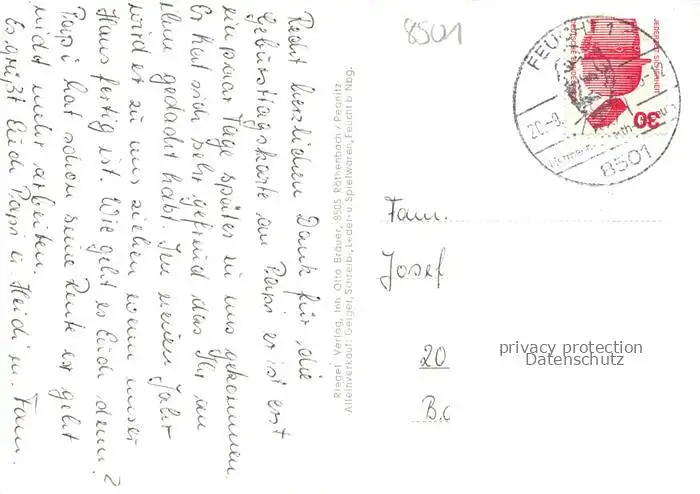 Recht herzlichen Dank für die
Geburtstagskarte an Papi er ist erst
ein paar Tage später zu uns gekommen.
Er hat sich sehr gefreud das Ihr an
ihm gedacht habt. Im neuen Jahr
wird er zu uns ziehen wenn unser
Haus fertig ist. Wie geht es Euch denn?
Papi hat schon seine Rente er geht
nicht mehr arbeiten.
Es grüßt Euch Papi u. Heidi m. Fam.
Riegel Verlag, Inh. Otto Bräuer, 8505 Röthenbach / Pegnitz
Alleinverkauf: Geiger, Schreib-, Leder- u. Spielwaren, Feucht b. Nbg.
8501
FEUCHT 1
20.-9.
8501
30
Fam.
Josef
20
B.
privacy protection
Datenschutz